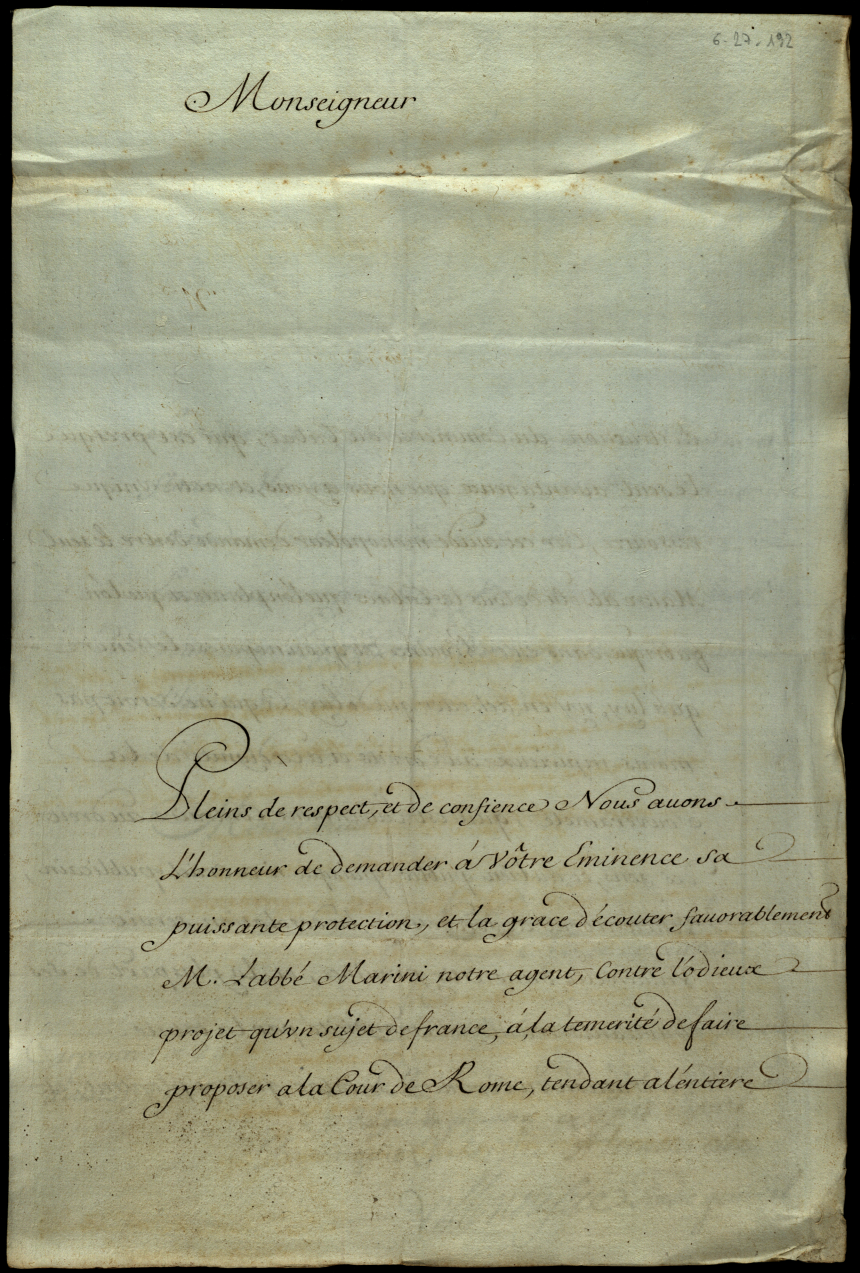 6-27-192
Monseigneur
Pleins de respect, et de confience Nous avons
L'honneur de demander á Vôtre Eminence sa
puissante protection, et la grace d'écouter favorablement
M. L'abbé Marini notre agent, Contre l'odieux
projet qu'vn sujet de france, á la temerité de faire
proposer a la Cour de Rome, tendant a l'éntiere